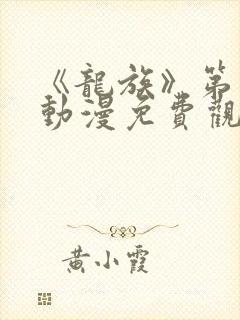 《龍族》第
動漫免費觀
黃小霞